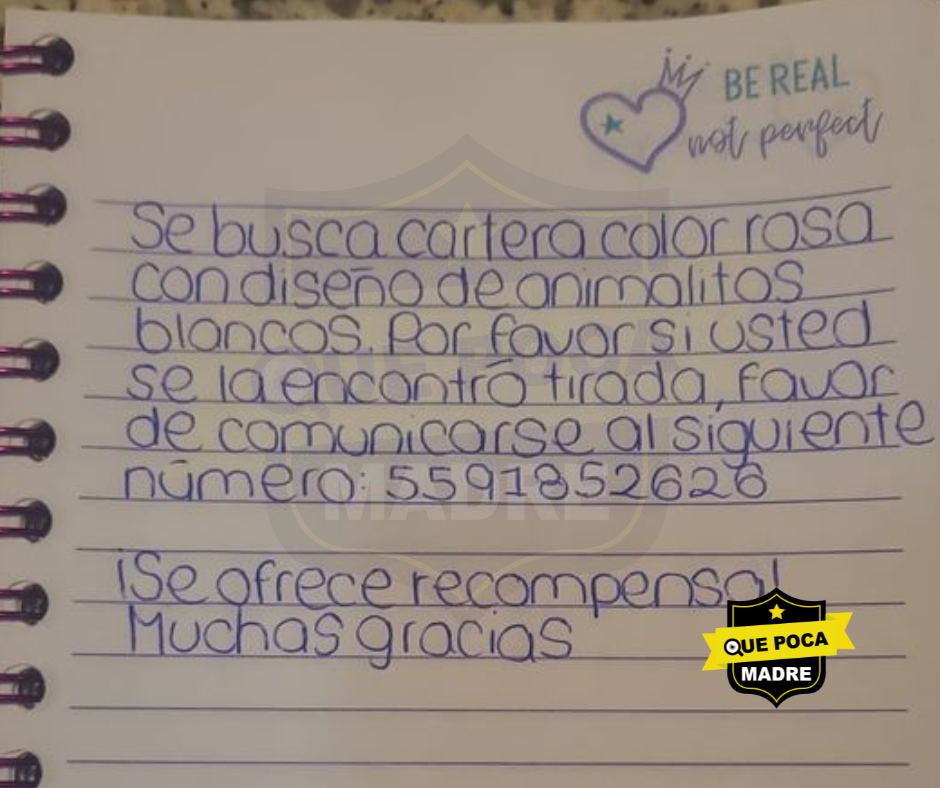 BE REAL
not perfect
Se busca cartera color rosa
con diseño de animalitos
blancos. Por favor si usted
se la encontró tirada, favor
de comunicarse al siguiente
número: 5591852626
¡Se ofrece recompensa!
Muchas gracias
QUE POCA
MADRE
QUE POCA
MADRE